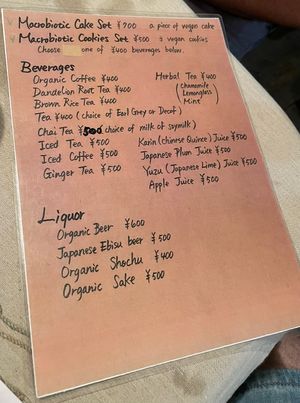 Macrobiotic Cake Set ¥700 a piece of vegan cake
Macrobiotic Cookies Set ¥500 3 vegan cookies
Choose one of ¥400 beverages below.
Beverages
Organic Coffee ¥400
Dandelion Root Tea ¥400
Brown Rice Tea ¥400
Tea ¥400 (choice of Earl Grey or Decaf)
Chai Tea ¥500 (choice of milk or soymilk)
Iced Tea ¥500
Iced Coffee ¥500
Ginger Tea ¥500
Herbal Tea ¥400
(Chamomile
Lemonglass
Mint)
Karin (Chinese Quince) Juice ¥500
Japanese Plum Juice ¥500
Yuzu (Japanese Lime) Juice ¥500
Apple Juice ¥500
Liquor
Organic Beer ¥600
Japanese Ebisu beer ¥500
Organic Shochu ¥400
Organic Sake ¥500